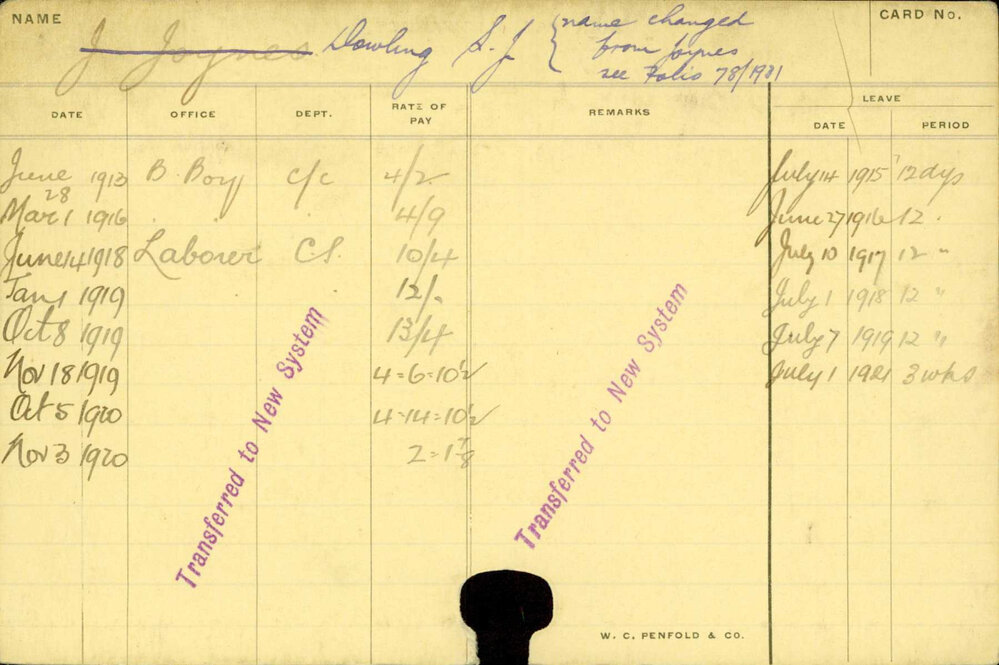 NAME
J Joynes Dowling S. J {name changed
from Joynes
see Folio 78/1921
CARD No.
DATE OFFICE DEPT. RATE OF PAY REMARKS LEAVE
DATE PERIOD
June 1913 B. Boy c/c 4/2 July 14 1915 12 dys
Mar 1 28 1916 " 4/9 June 27 1916 12 "
June 14 1918 Laborer CS. 10/4 July 10 1917 12 "
Jan 1 1919 12/- July 1 1918 12 "
Oct 8 1919 13/4 July 7 1919 12 "
Nov 18 1919 4=6=10½ July 1 1921 3 wks
Oct 5 1920 4=14=10½
Nov 3 1920 2=1⅞
Transferred to New System
Transferred to New System
W. C. PENFOLD & CO.